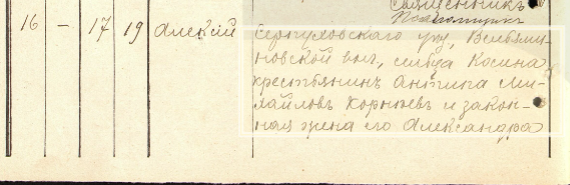 священникъ
16 – 17 19 Алексiй
Серпуховскаго уѣз, Вельями-
новской вол, сельца Косина
крестьянинъ Антипа Ми-
хайловъ Корнѣевъ и закон-
ная жена его Александра